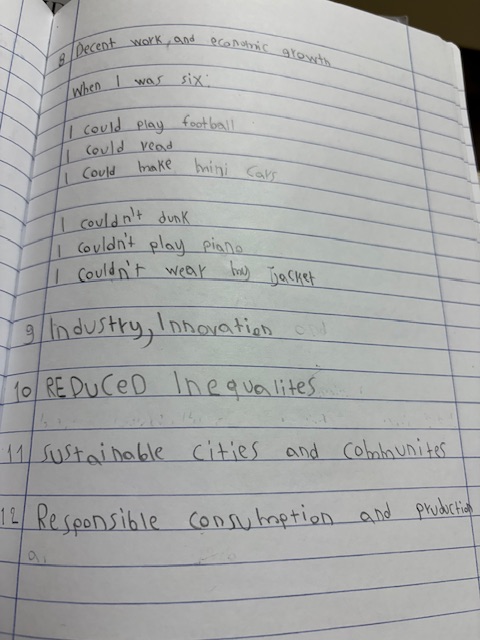 8 Decent work, and economic growth
When I was six:
I could play football
I could read
I could make mini cars
I couldn't dunk
I couldn't play piano
I couldn't wear my jacket
9 Industry, Innovation and
10 REDUCED Inequalites
11 Sustainable cities and communites
12 Responsible consumption and pruduction
a.